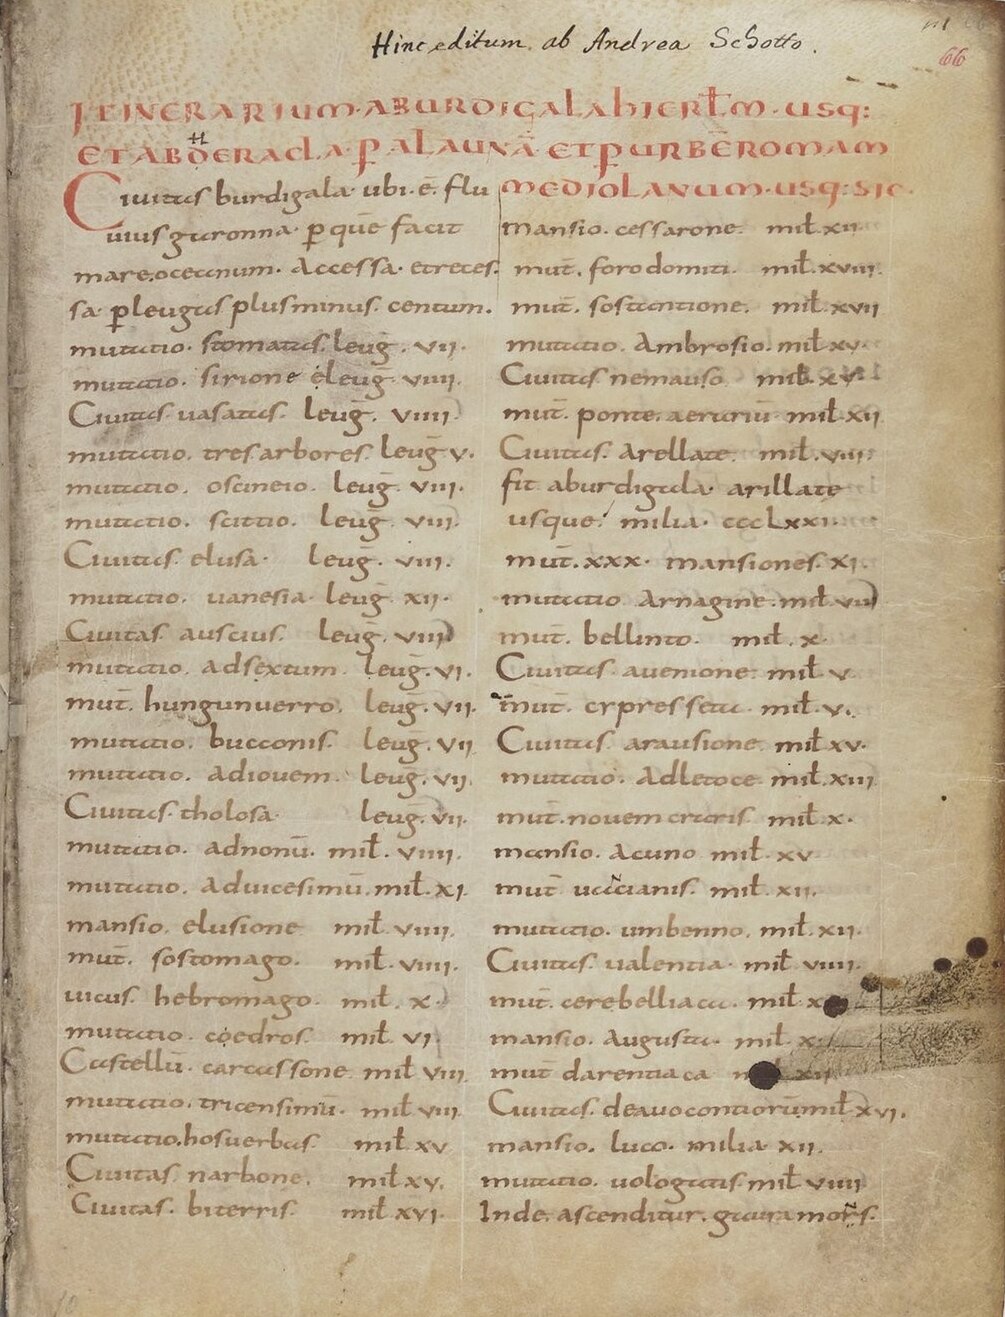 Hinc editum ab Andrea Schotto.
66
ITINERARIUM·A BURDIGALA HIERŁM·USQ:
ET AB HERACLA·P̱ AULAUNĀ·ET P̱ URBĒ ROMAM
MEDIOLANUM·USQ: SIC·
Ciuitas burdigala· ubi·ē· flu
uius garonna· p̱ quē facit
mare oceanum· Accessa· et reces
sa· p̱ leugas plus minus centum.
mutatio· stomatas· leuḡ· VII·
mutatio. sirione leuḡ VIIII.
Ciuitas uasatas· leuḡ. VIIII·
mutatio. tres arbores. leuḡ V.
mutatio. oscineio. leuḡ. VIII.
mutatio. scittio. leuḡ VIII.
Ciuitas elusa· leuḡ. VIII.
mutatio. uanesia· leuḡ XII·
Ciuitas auscius. leuḡ. VIII
mutatio· ad sextum. leuḡ. VI.
mut̄. hungunuerro. leuḡ. VII.
mutatio. bucconis. leuḡ. VII
mutatio. ad iouem. leuḡ. VII.
Ciuitas tholosa· leuḡ. VII.
mutatio. ad nonū. mił. VIIII.
mutatio. Ad uicesimū. mił. XI.
mansio. elusione mił. VIIII.
mut̄. sostomago. mił. VIIII.
uicus hebromago. mił. X·
mutatio· coedros. mił VI
Castellū· carcassone mił VIII
mutatio. tricensimū. mił VIII.
mutatio. hosuerbas mił XV
Ciuitas narbone. mił XV.
Ciuitas. biterris. mił XVI·
mansio. cessarone. mił XII
mut̄. foro domiti. mił. XVIII.
mut̄. sostantione. mił. XVII
mutatio. Ambrosio. mił XV.
Ciuitas nemauso mił XV
mut̄. ponte. aerariū mił XII
Ciuitas. Arellate. mił. VIII:
fit a burdigala· arillate
usque· milia· CCCLXXI·
mut̄. XXX· mansiones. XI.
mutatio Arnagine. mił VIII
mut̄. bellinto. mił. X·
Ciuitas auenione· mił V
mut̄. cypresseta mił. V.
Ciuitas. arausione mił XV·
mutatio. Ad letoce mił. XIII
mut̄. nouem craris mił X·
mansio. Acuno mił XV
mut̄ uancianis. mił XII.
mutatio. umbenno. mił. XII·
Ciuitas ualentia· mił VIIII.
mut̄. cerebelliaca· mił
mansio. Augusta· mił X
mut̄ darentiaca XII
Ciuitas. deauocontiorū mił XVI.
mansio. luco. milia· XII.
mutatio. uologatis mił VIIII
Inde ascenditur. gaura mons.